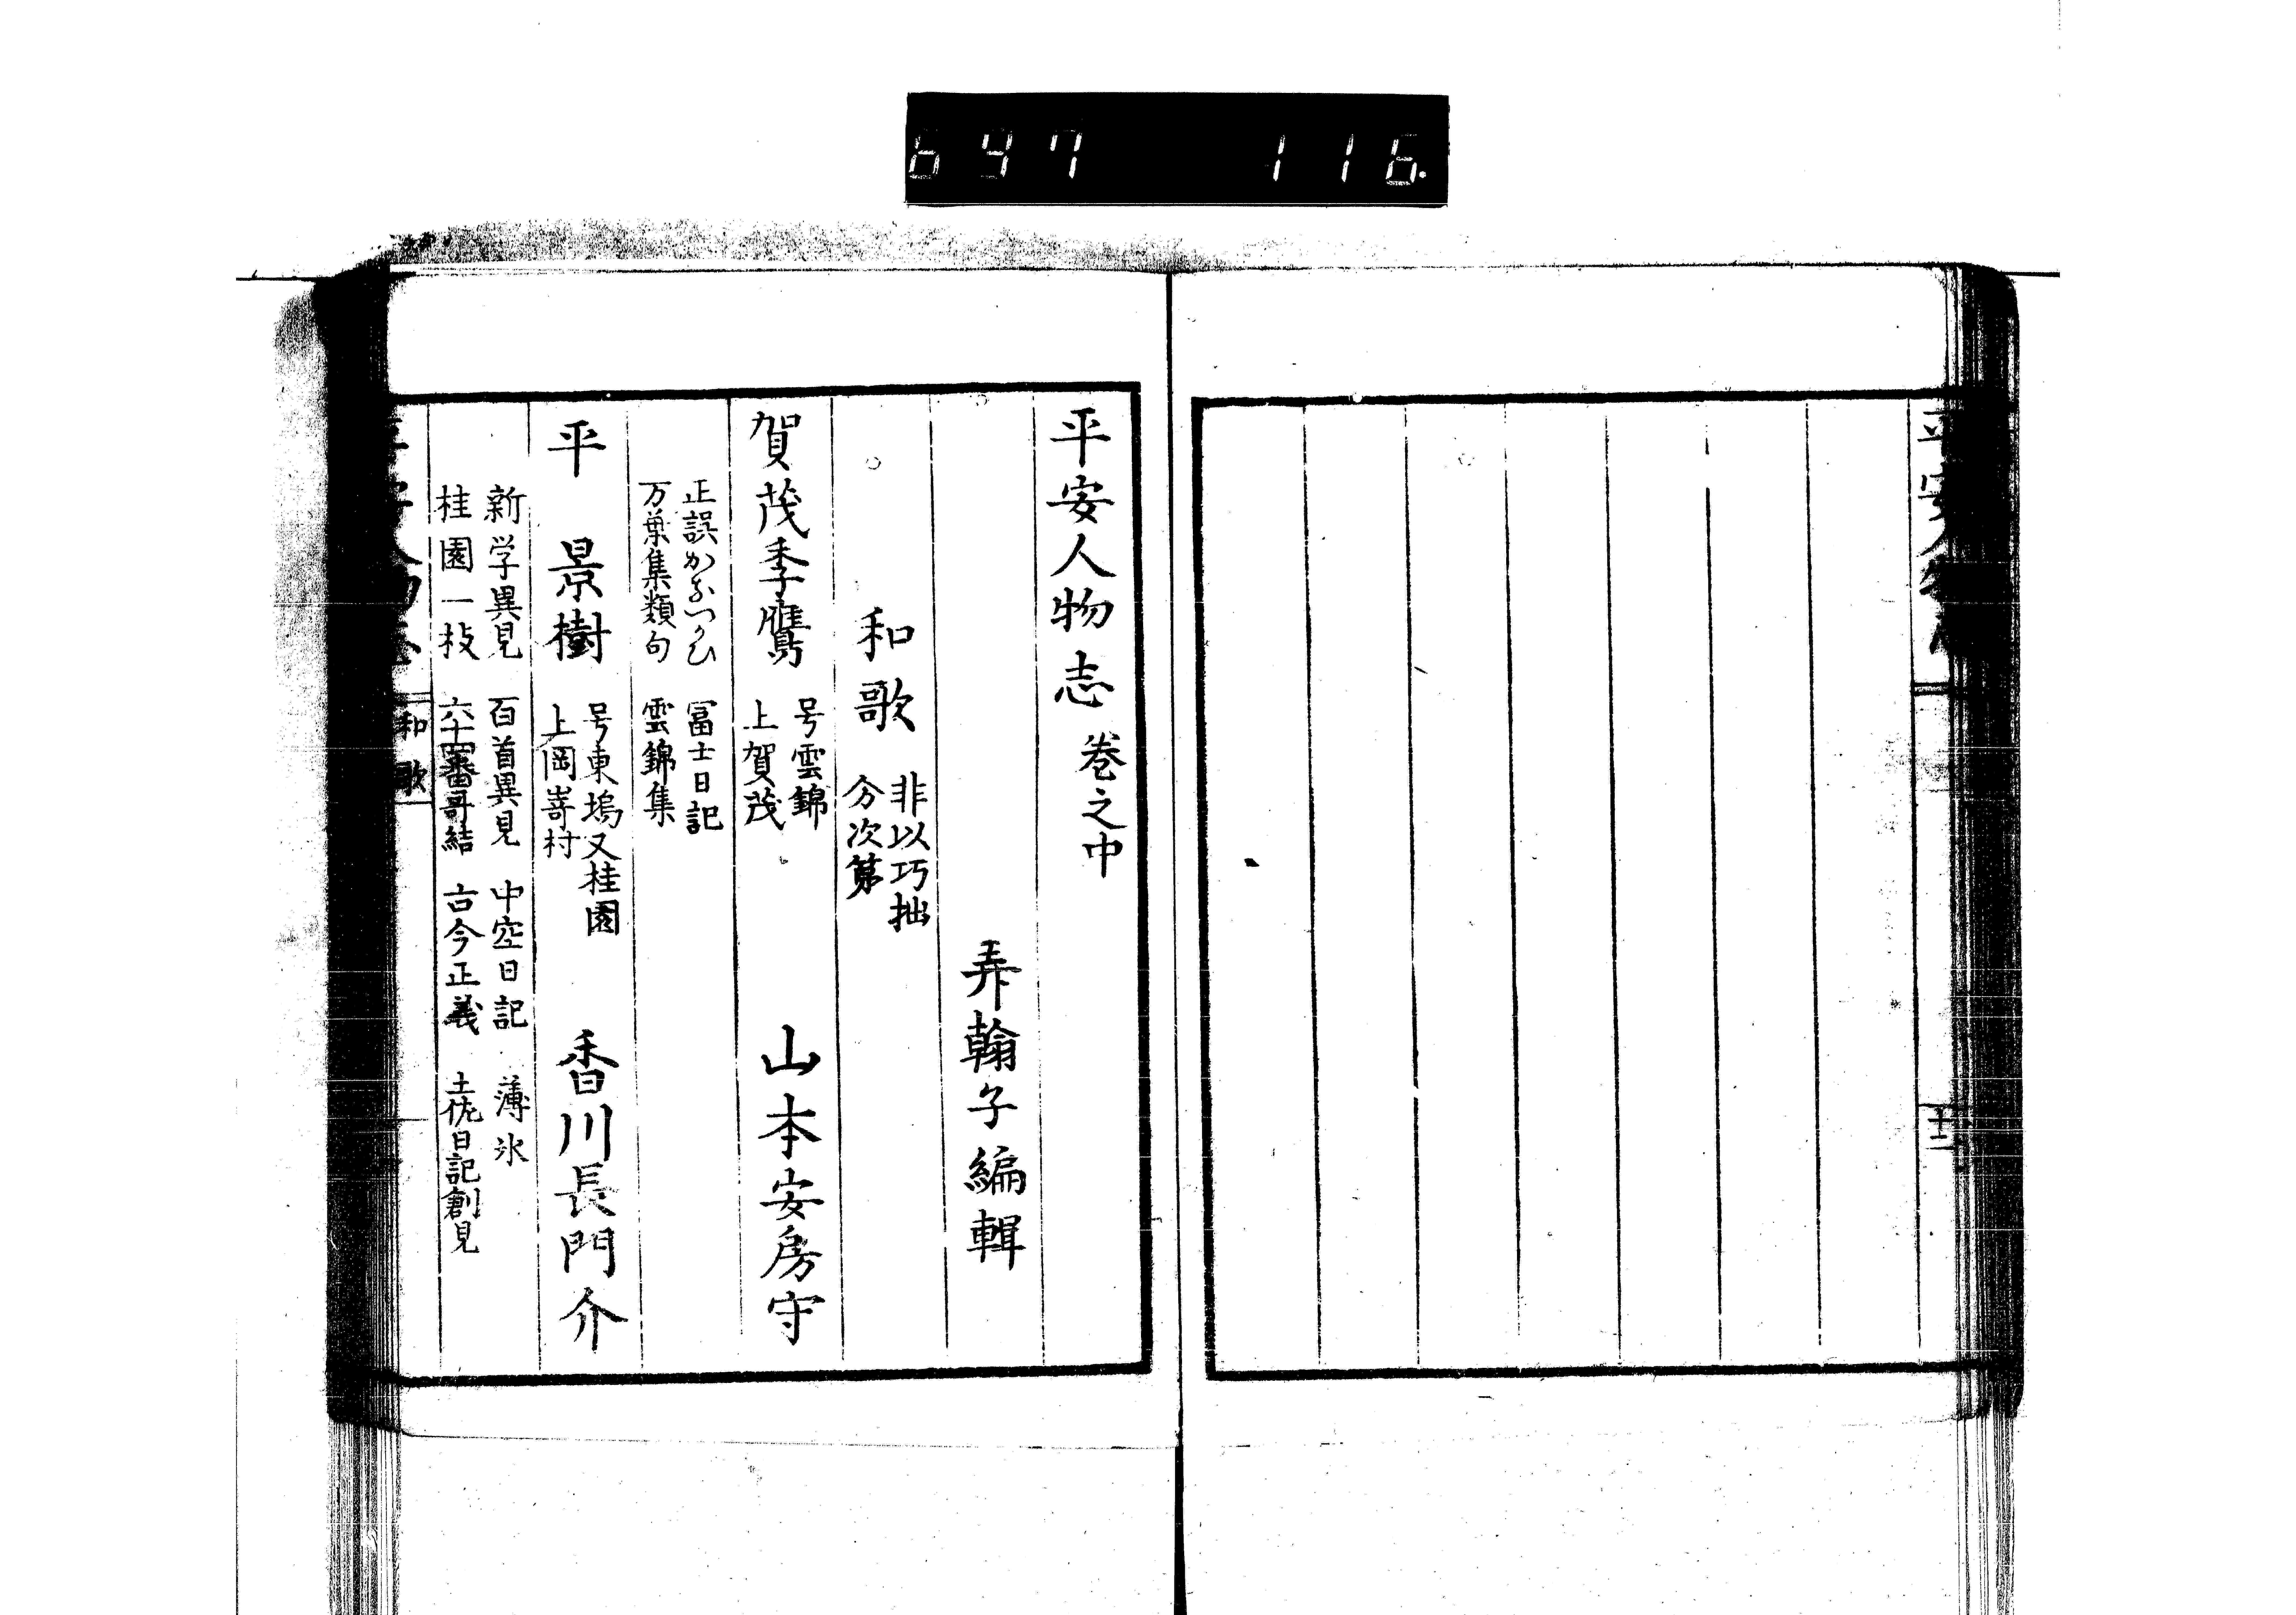 647 116.
十二
平安人物志 巻之中
弄翰子編輯
和歌 非以巧拙
分次第
賀茂季鷹 号雲錦
上賀茂 山本安房守
正誤かなつかひ 冨士日記
万葉集類句 雲錦集
平 景樹 号東塢又桂園
上岡嵜村 香川長門介
新学異見 百首異見 中空日記 薄氷
桂園一枝 六十四番哥結 古今正義 土佐日記創見
和歌